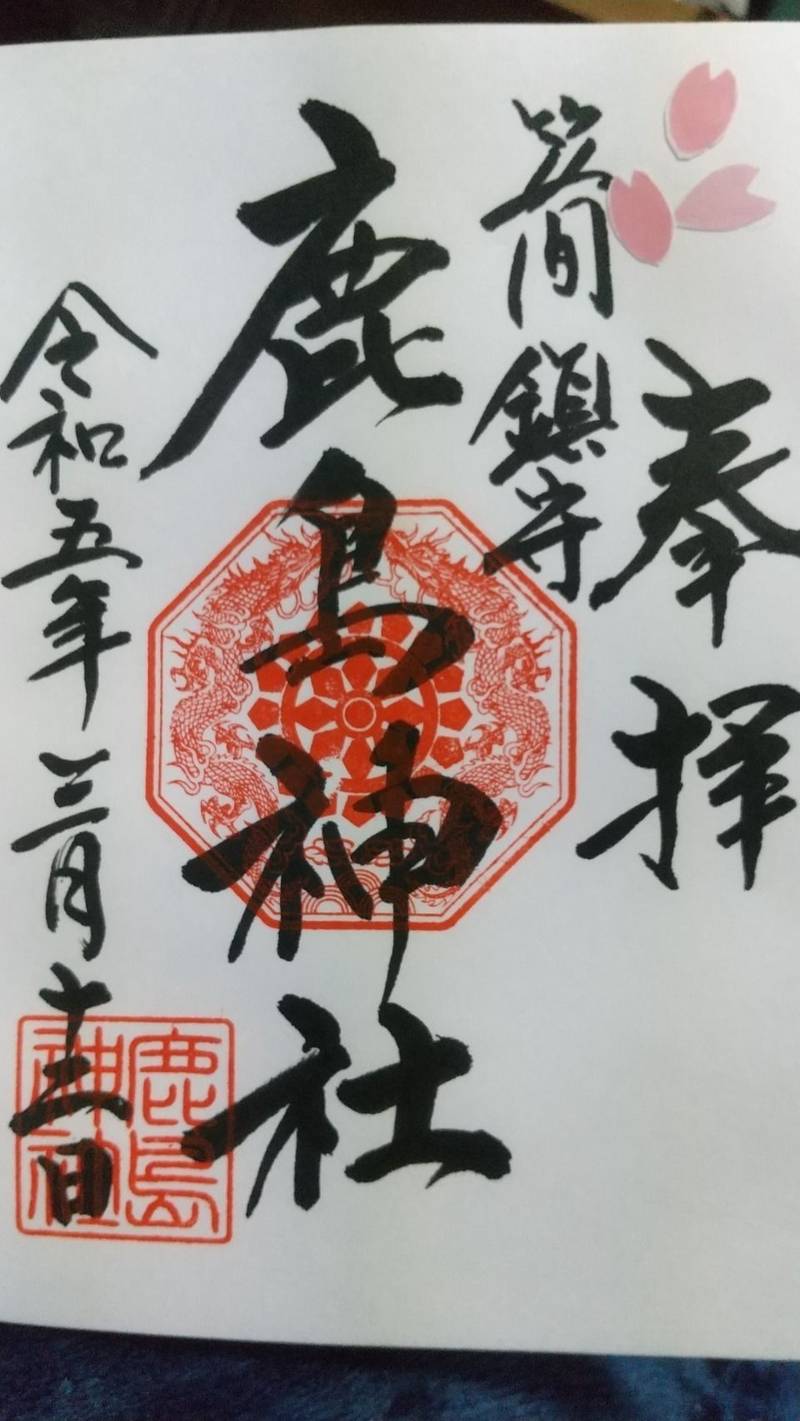 奉拝
笠間鎮守
鹿島神社
令和五年三月十三日
鹿島神社